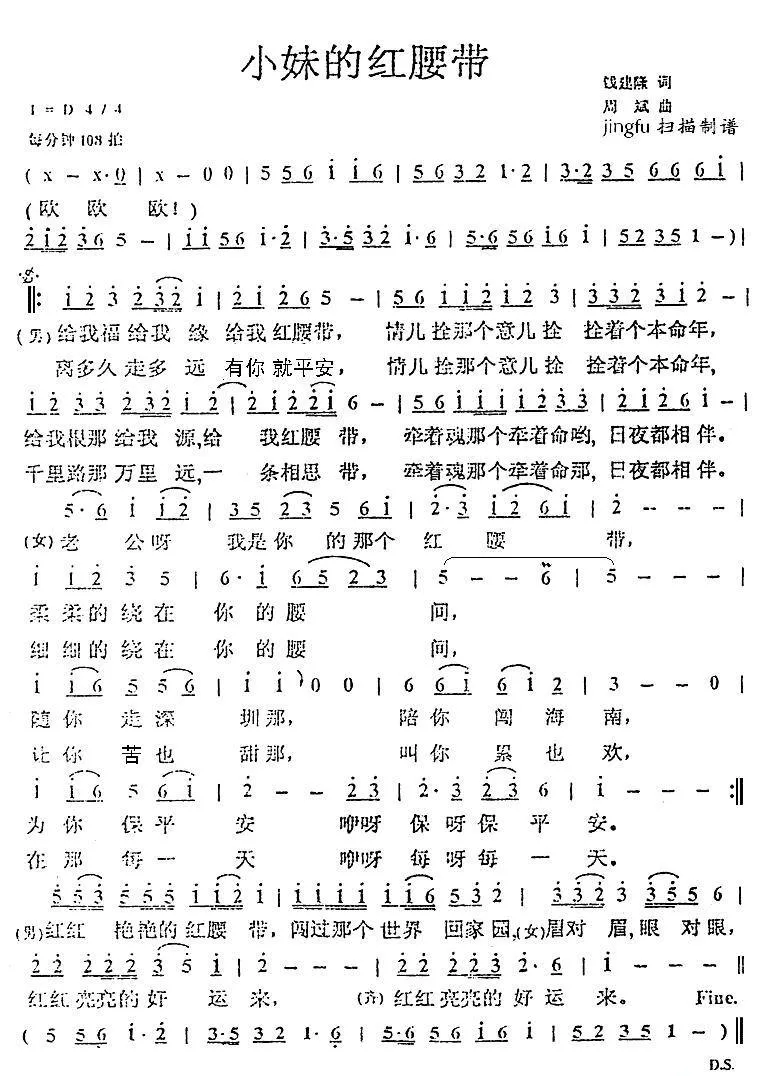 小妹的红腰带
钱建隆 词
1 = D 4/4
周斌 曲
每分钟108拍
jingfu 扫描制谱
( x - x· 0 | x - 0 0 | 5 5 6 i i 6 | 5 6 3 2 1·2 | 3·2 3 5 6 6 6 i |
(欧 欧 欧!)
2 i 2 3 6 5 - | i i 5 6 i·2 | 3·5 3 2 i·6 | 5·6 5 6 i 6 i | 5 2 3 5 1 - ) |
i 2 3 2 3 2 i | 2 i 2 6 5 - | 5 6 i i 2 i 2 | 3 3 2 3 i 2 - |
(男)给我福给我 缘 给我红腰带, 情儿拴那个意儿拴 拴着个本命年,
离多久走多 远 有你就平安, 情儿拴那个意儿拴 拴着个本命年,
i 2 3 2 3 2 i 2 | 2 i 2 2 i 6 - | 5 6 i i i i 2 3 | 2 i 2 6 i - |
给我根那给我 源,给 我红腰 带, 牵着魂那个牵着命哟, 日夜都相伴。
千里路那万里 远,一 条相思 带, 牵着魂那个牵着命那, 日夜都相伴。
5·6 i i 2 | 3 5 2 3 5 6 i | 2·3 i 2 6 i | 2 - - - |
(女)老 公呀 我是你 的那个 红 腰 带,
i i 2 3 5 | 6·i 6 5 2 3 | 5 - - 6 | 5 - - - |
柔柔的绕在 你的腰 间,
细细的绕在 你的腰 间,
i i 6 5 5 6 | i i 0 0 | 6 6 i 6 i 2 | 3 - - 0 |
随你 走深 圳那, 陪你 闯海南,
让你 苦也 甜那, 叫你 累也欢,
i i 6 5 6 i | 2 - - 2 3 | 2·3 2 3 6 | i - - - :||
为你 保平 安 咿呀 保呀保 平 安。
在那 每一 天 咿呀 每呀每 一 天。
5 5 3 5 5 5 i i 2 i | i i i i i i 6 5 3 2 | 3 3 2 3 3 5 5 6 |
(男)红红 艳艳的红腰 带, 闯过那个世界 回家园,(女)眉对 眉,眼 对眼,
2 2 2 2 2 3 5 i | 2 - - - | 2 2 2 2 3 2·6 | i - - - ||
红红亮亮的好 运来, (齐)红红亮亮的好运 来。 Fine.
( 5 5 6 i·2 | 3·5 3 2 1·6 | 5·6 5 6 i 6 i | 5 2 3 5 1 - ) ||
D.S.